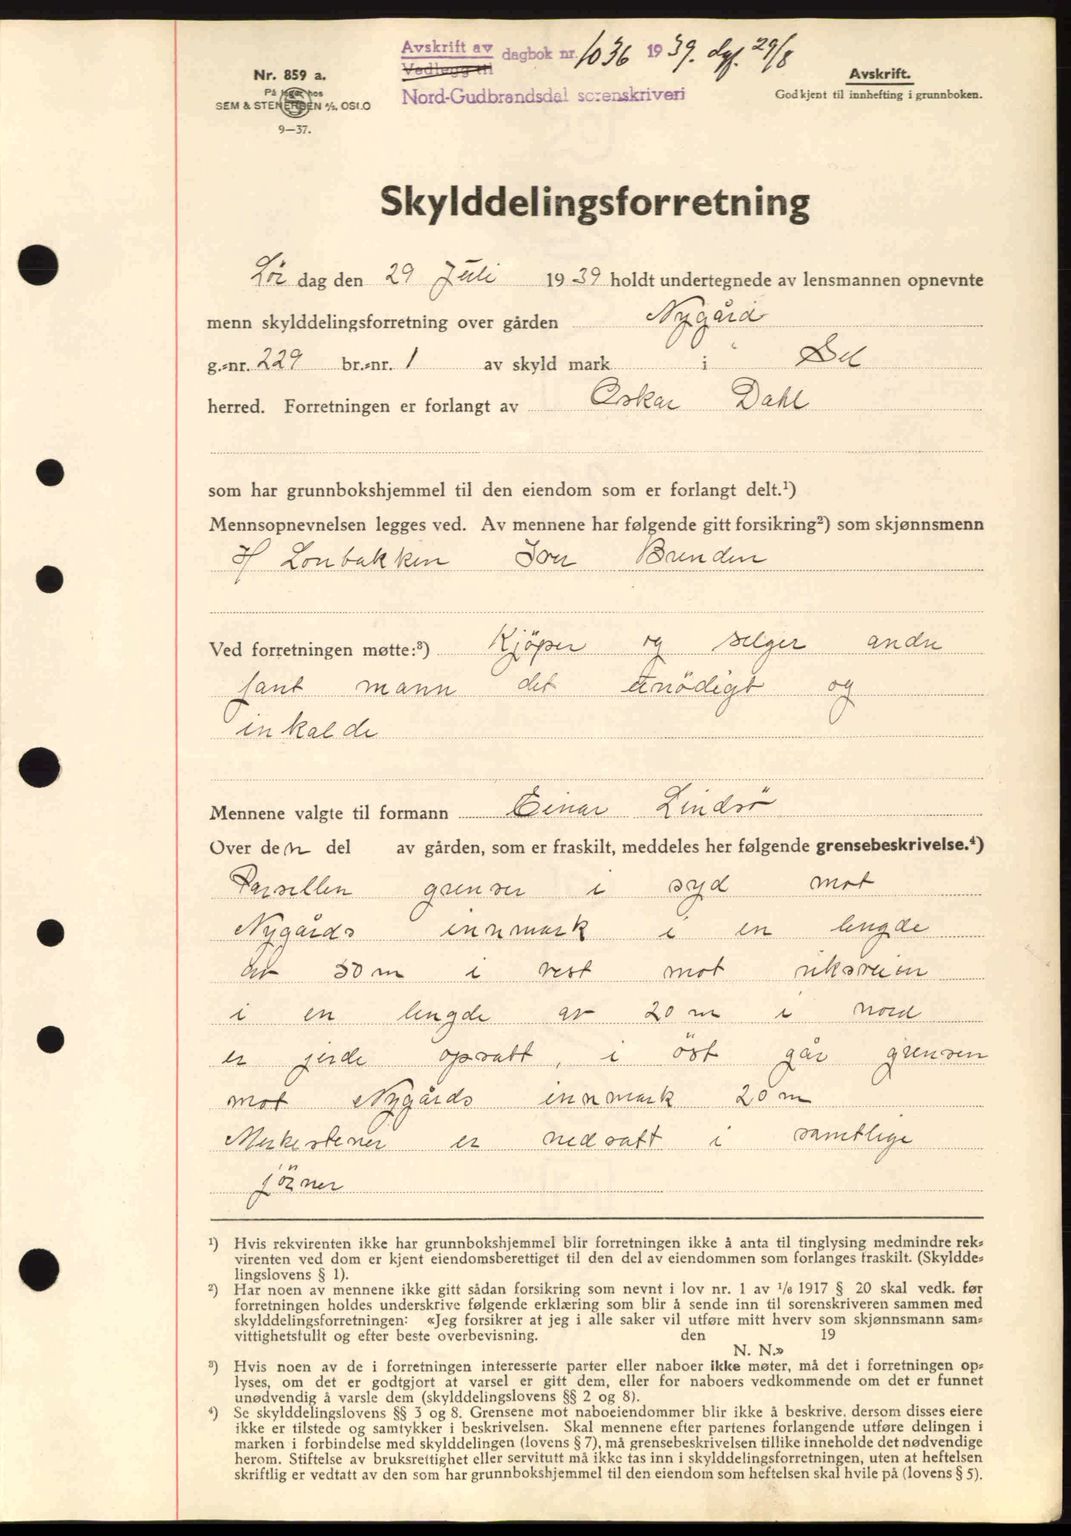 Avskrift av
Vedlegg til
dagbok nr. 1036 1939. dgf. 29/8
Nord-Gudbrandsdal sorenskriveri
Nr. 859 a.
På lager hos
SEM & STENERSEN A/S, OSLO
9—37.
Avskrift.
Godkjent til innhefting i grunnboken.
Skylddelingsforretning
Lør dag den 29 Juli 1939 holdt undertegnede av lensmannen opnevnte
menn skylddelingsforretning over gården Nygård
g.-nr. 229 br.-nr. 1 av skyld mark i Sel
herred. Forretningen er forlangt av Oskar Dahl
som har grunnbokshjemmel til den eiendom som er forlangt delt.¹)
Mennsopnevnelsen legges ved. Av mennene har følgende gitt forsikring²) som skjønnsmenn
H Lonbakken Iver Brenden
Ved forretningen møtte:³) Kjöper og selger andre
fant mann det unödigt og
inkalde
Mennene valgte til formann Einar Lindsö
Over den del av gården, som er fraskilt, meddeles her følgende grensebeskrivelse.⁴)
Parsellen grenser i syd mot
Nygårds innmark i en lengde
av 50 m i vest mot riksveien
i en lengde av 20 m i nord
er jerde opsatt, i öst går grensen
mot Nygårds innmark 20 m
Merkestener er nedsatt i samtlige
jörner
¹) Hvis rekvirenten ikke har grunnbokshjemmel blir forretningen ikke å anta til tinglysing medmindre rek-
virenten ved dom er kjent eiendomsberettiget til den del av eiendommen som forlanges fraskilt. (Skyldde-
lingslovens § 1).
²) Har noen av mennene ikke gitt sådan forsikring som nevnt i lov nr. 1 av 1/6 1917 § 20 skal vedk. før
forretningen holdes underskrive følgende erklæring som blir å sende inn til sorenskriveren sammen med
skylddelingsforretningen: «Jeg forsikrer at jeg i alle saker vil utføre mitt hverv som skjønnsmann sam-
vittighetsfullt og efter beste overbevisning. den 19
N. N.»
³) Hvis noen av de i forretningen interesserte parter eller naboer ikke møter, må det i forretningen op-
lyses, om det er godtgjort at varsel er gitt dem, eller for naboers vedkommende om det er funnet
unødvendig å varsle dem (skylddelingslovens §§ 2 og 8).
⁴) Se skylddelingslovens §§ 3 og 8. Grensene mot naboeiendommer blir ikke å beskrive, dersom disses eiere
ikke er tilstede og samtykker i beskrivelsen. Skal mennene efter partenes forlangende utføre delingen i
marken i forbindelse med skylddelingen (lovens § 7), må grensebeskrivelsen tillike inneholde det nødvendige
herom. Stiftelse av bruksrettighet eller servitutt må ikke tas inn i skylddelingsforretningen, uten at heftelsen
skriftlig er vedtatt av den som har grunnbokshjemmel til den eiendom som heftelsen skal hvile på (lovens § 5).